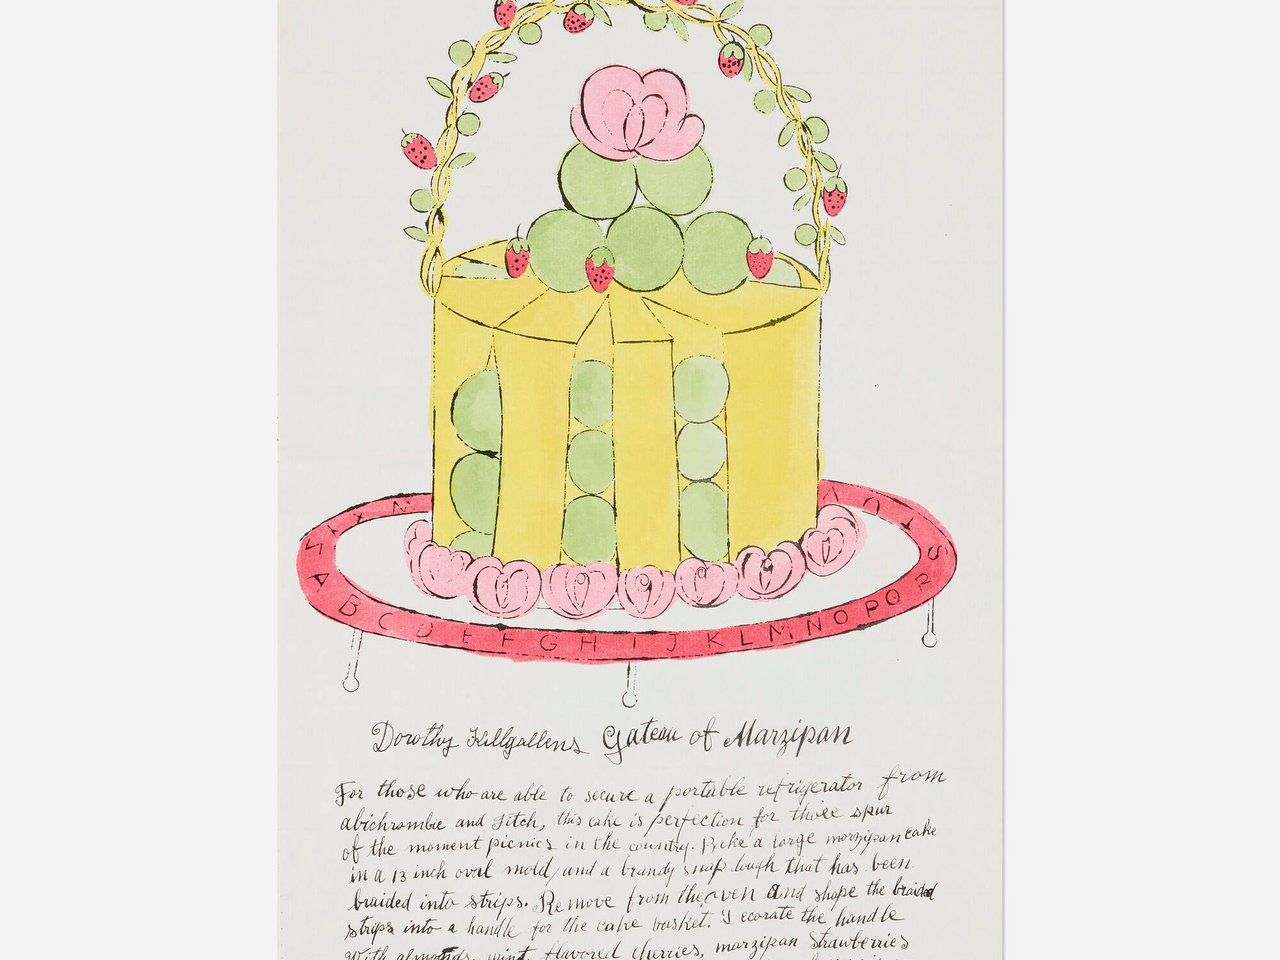 A B C D E F G H I J K L M N O P O R S T U V W X Y Z
Dorothy Killgallens Gateau of Marzipan
For those who are able to secure a portable refrigerator from
abichrombie and Fitch, this cake is perfection for those spur
of the moment picnics in the country. Bake a large marzipan cake
in a 13 inch oval mold, and a brandy snap dough that has been
braided into strips. Remove from the oven and shape the braided
strips into a handle for the cake basket. Decorate the handle
With almonds, mint flavored cherries, marzipan strawberries